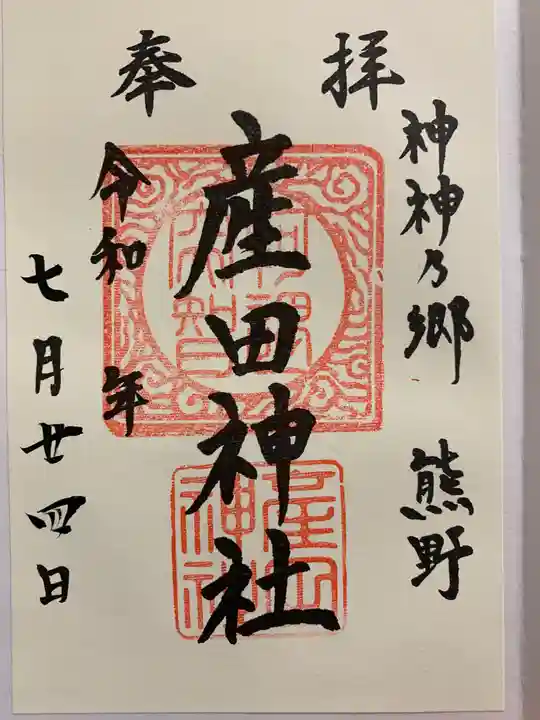 神神乃郷 熊野
奉拝
産田神社
令和 年
七月廿四日
産田神社